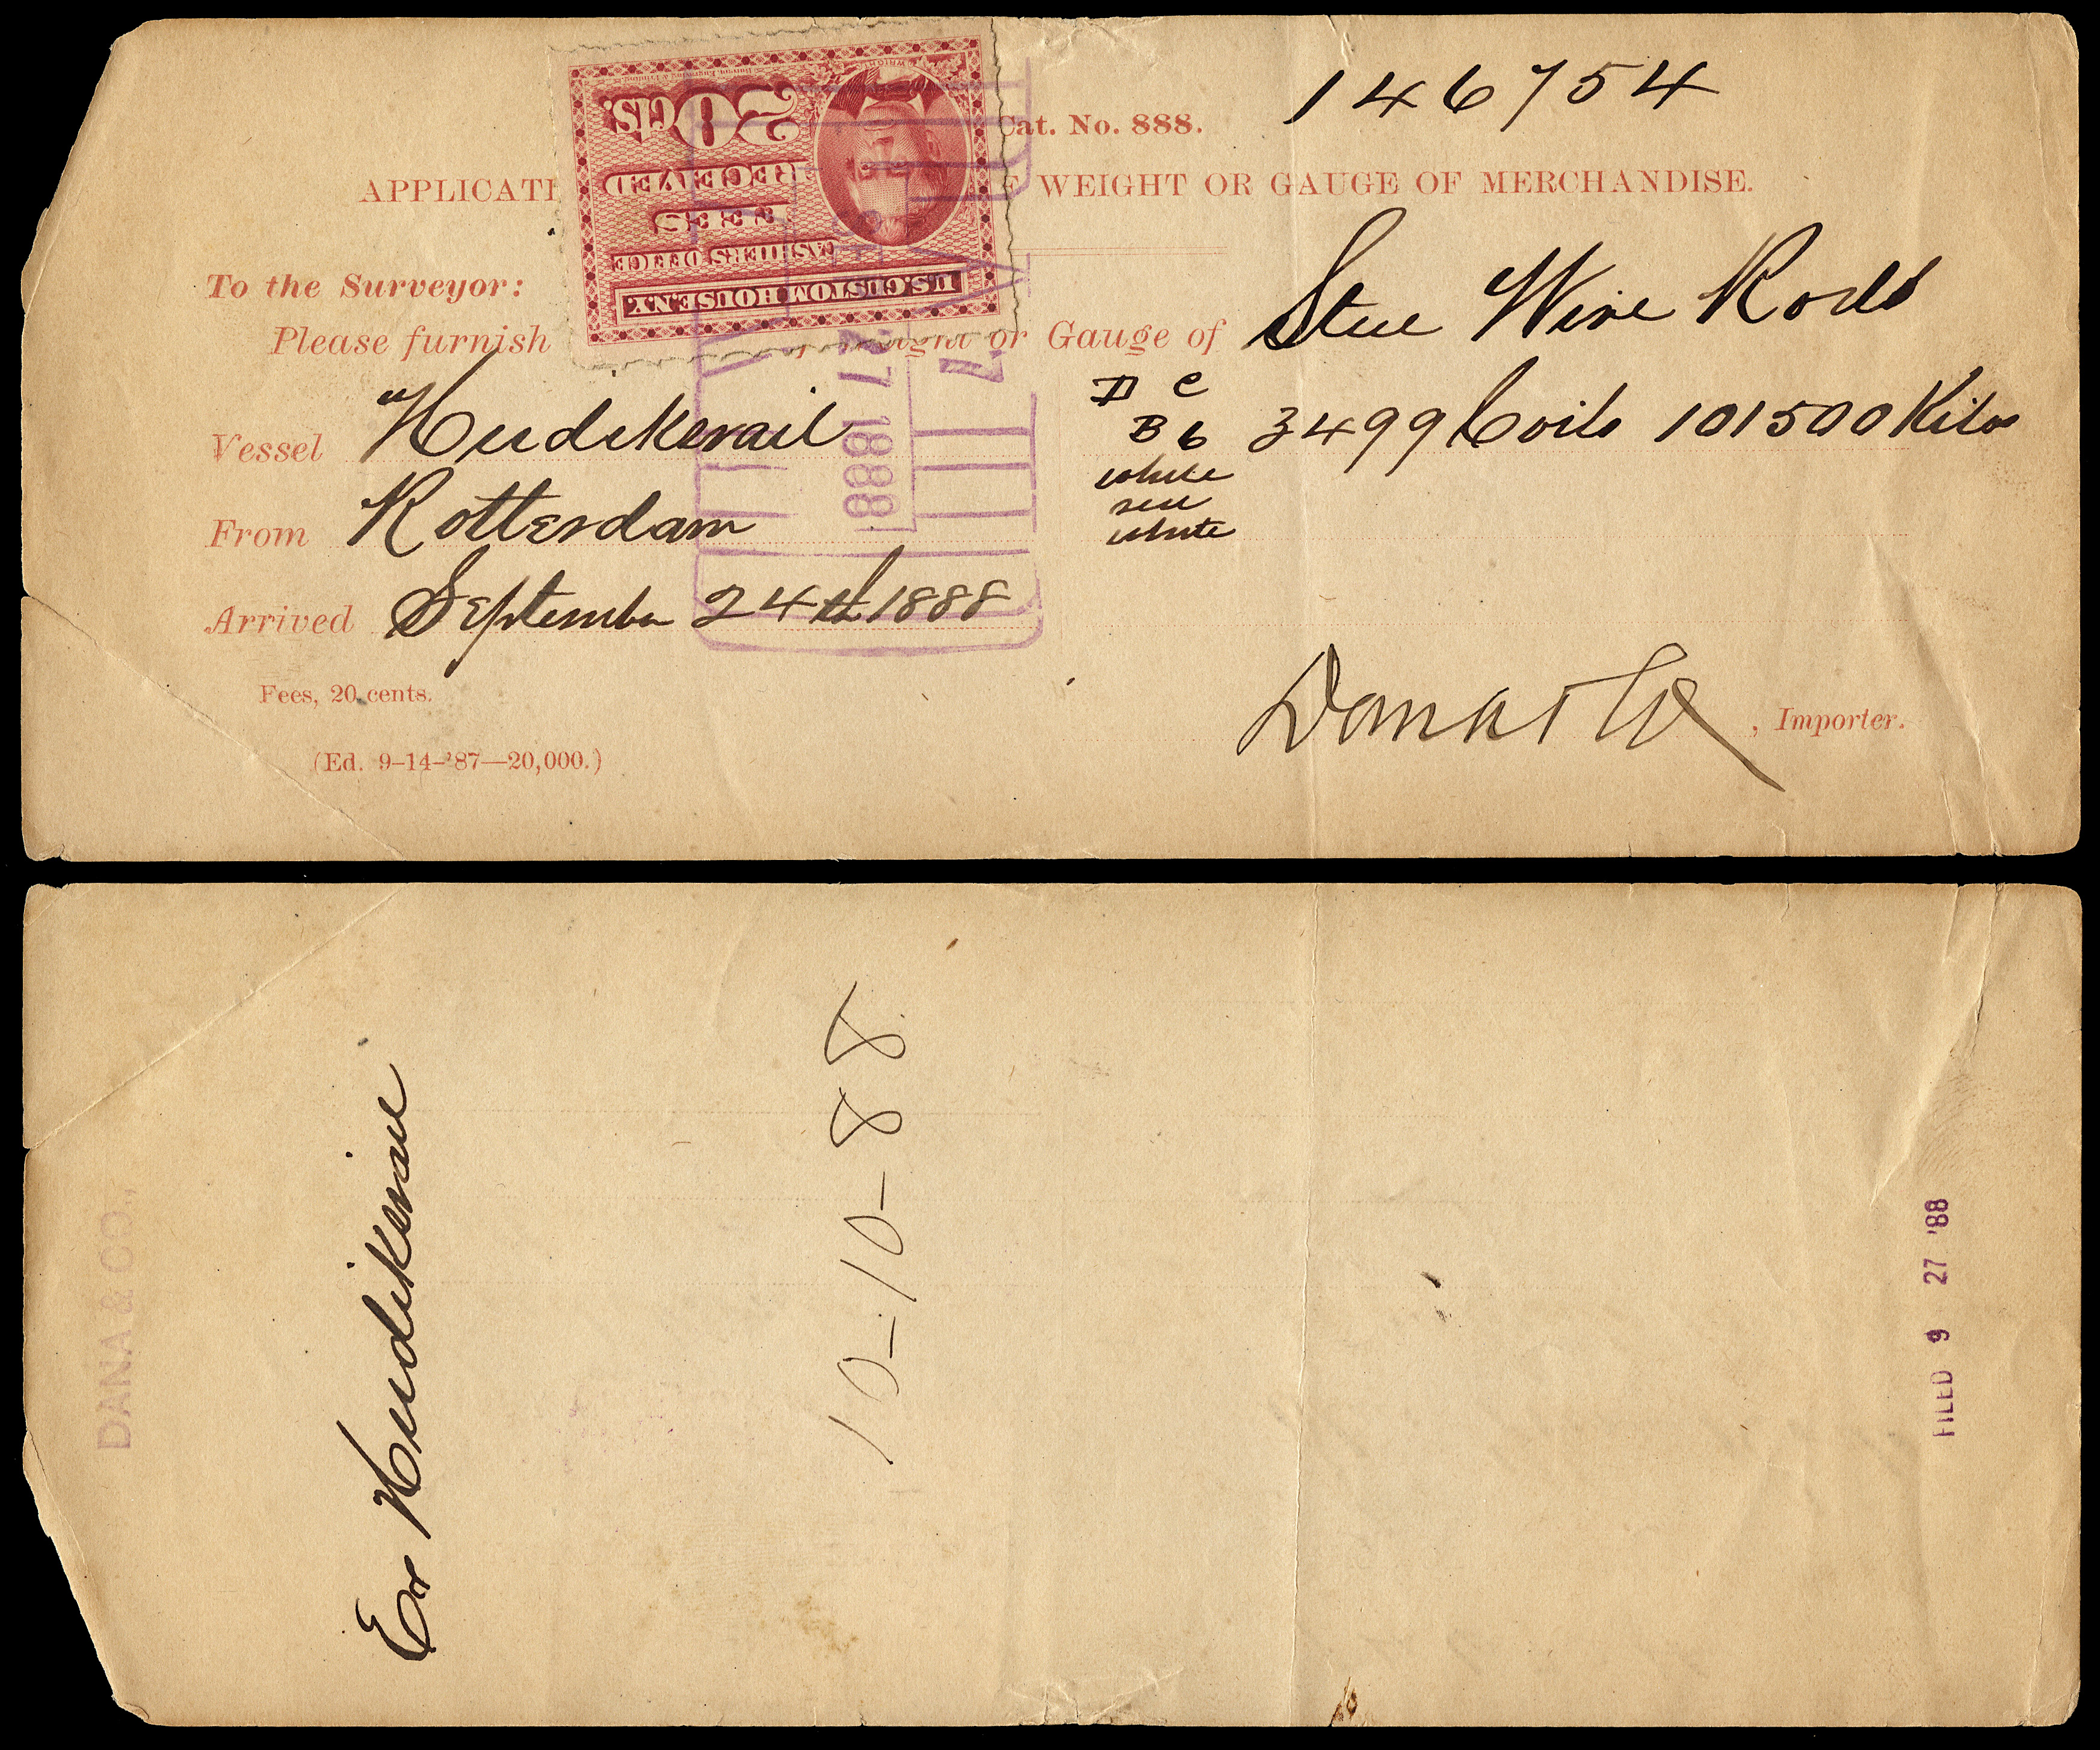 Cat. No. 888.
146754
APPLICATI F WEIGHT OR GAUGE OF MERCHANDISE.
20 CTS.
RECEIVED
FEES
CASHIERS OFFICE
U.S. CUSTOM HOUSE N.Y.
To the Surveyor:
Please furnish or Gauge of Steel Wire Rods
27 1888
Vessel Hudikswail
D C
B 6 3499 Coils 101500 Kilos
white
red
white
From Rotterdam
Arrived September 24th 1888
Fees, 20 cents.
Dana & Co, Importer.
(Ed. 9-14-'87—20,000.)
DANA & CO.,
Ex
10-10-88
FILED 9 27 '88